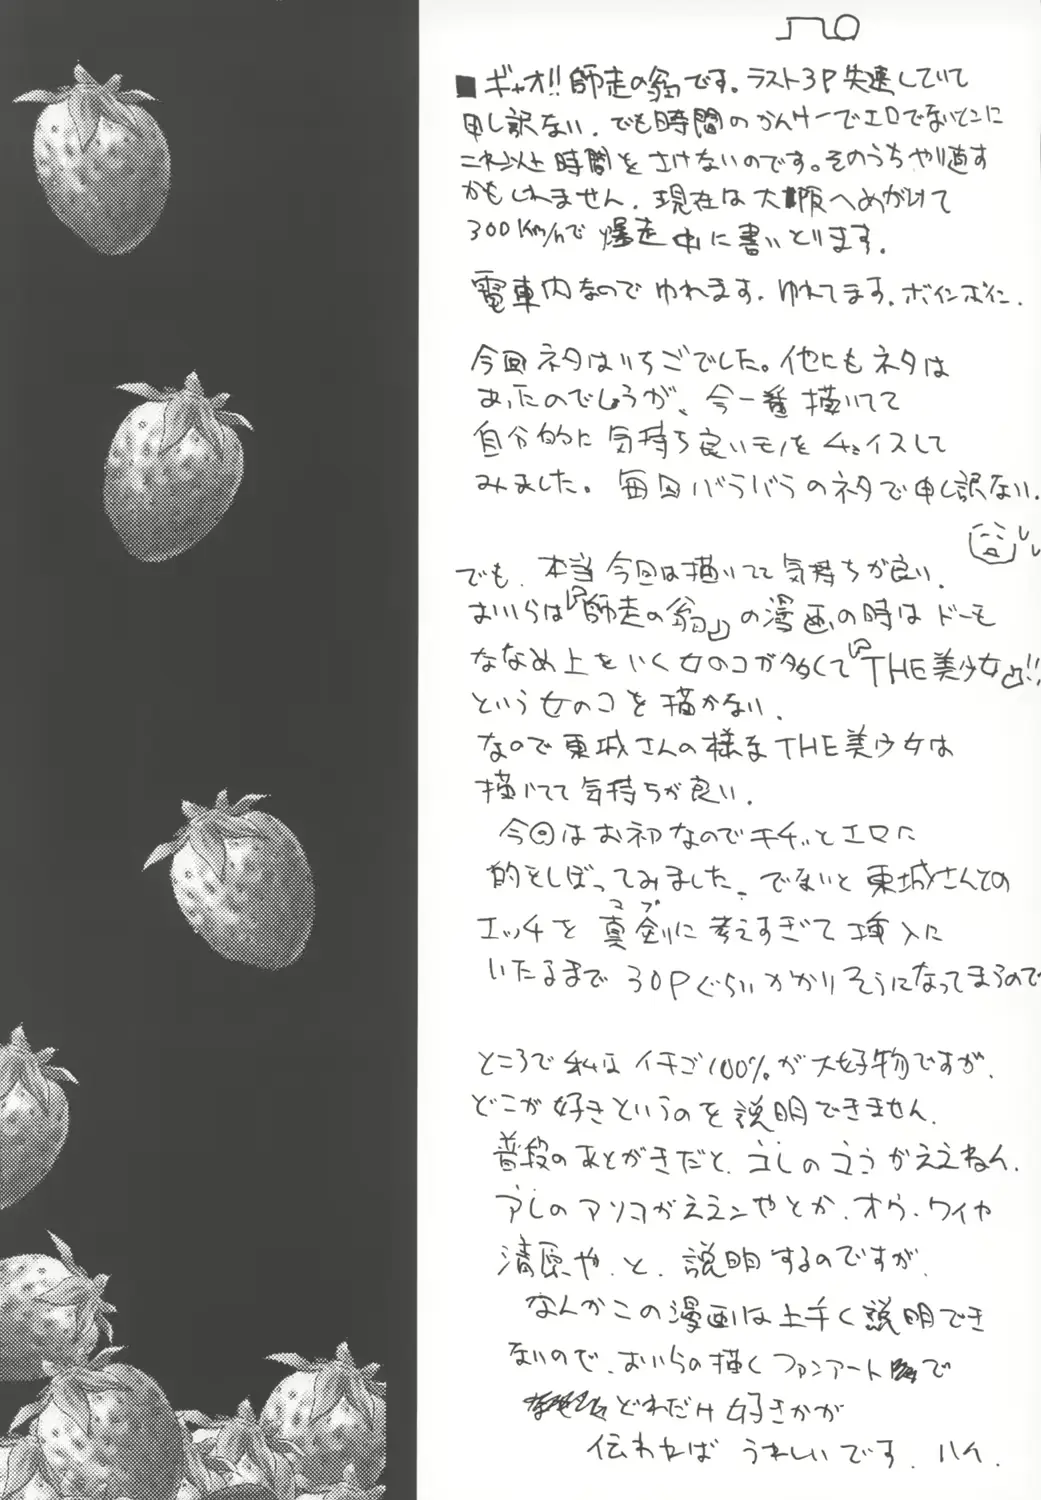 ■ギャオ!!師走の翁です。ラスト3P失速していて
申し訳ない。でも時間のかんけーでエロでないとこに
これ以上時間をさけないのです。そのうちやり直す
かもしれません。現在は大阪へめがけて
300km/hで爆走中に書いとります。
電車内なのでゆれます。ゆれてます。ボインボイン.
今回ネタはいちごでした。他にもネタは
あったのでしょうが、今一番描いてて
自分的に気持ち良いモノをチョイスして
みました。毎回バラバラのネタで申し訳ない.
でも、本当今回は描いてて気持ちが良い.
おいらは『師走の翁』の漫画の時はドーモ
ななめ上をいく女のコが多くて『THE美少女』!!
という女のコを描かない.
なので東城さんの様なTHE美少女は
描いてて気持ちが良い.
今回はお初なのでキチッとエロに
的をしぼってみました。でないと東城さんとの
エッチを真剣に考えすぎて挿入に
いたるまで30Pぐらいかかりそうになってまうので
ところで私はイチご100%が大好物ですが、
どこが好きというのを説明できません.
普段のあとがきだと、コレのココがええねん.
アレのアソコがええンやとか、オウ、ワイや
清原や、と、説明するのですが、
なんかこの漫画は上手く説明でき
ないので、おいらの描くファンアートで
どれだけ好きかが
伝われば うれしいです. ハイ.